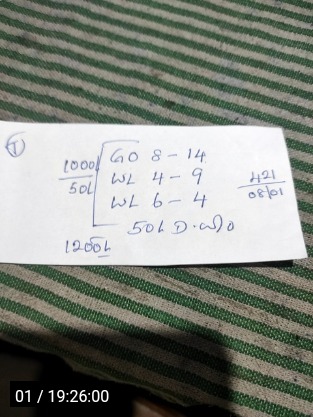 T
1000L GO 8-14
50L WL 4-9 421
WL 6-4 08/01
50L D.W/o
1200L
01 / 19:26:00